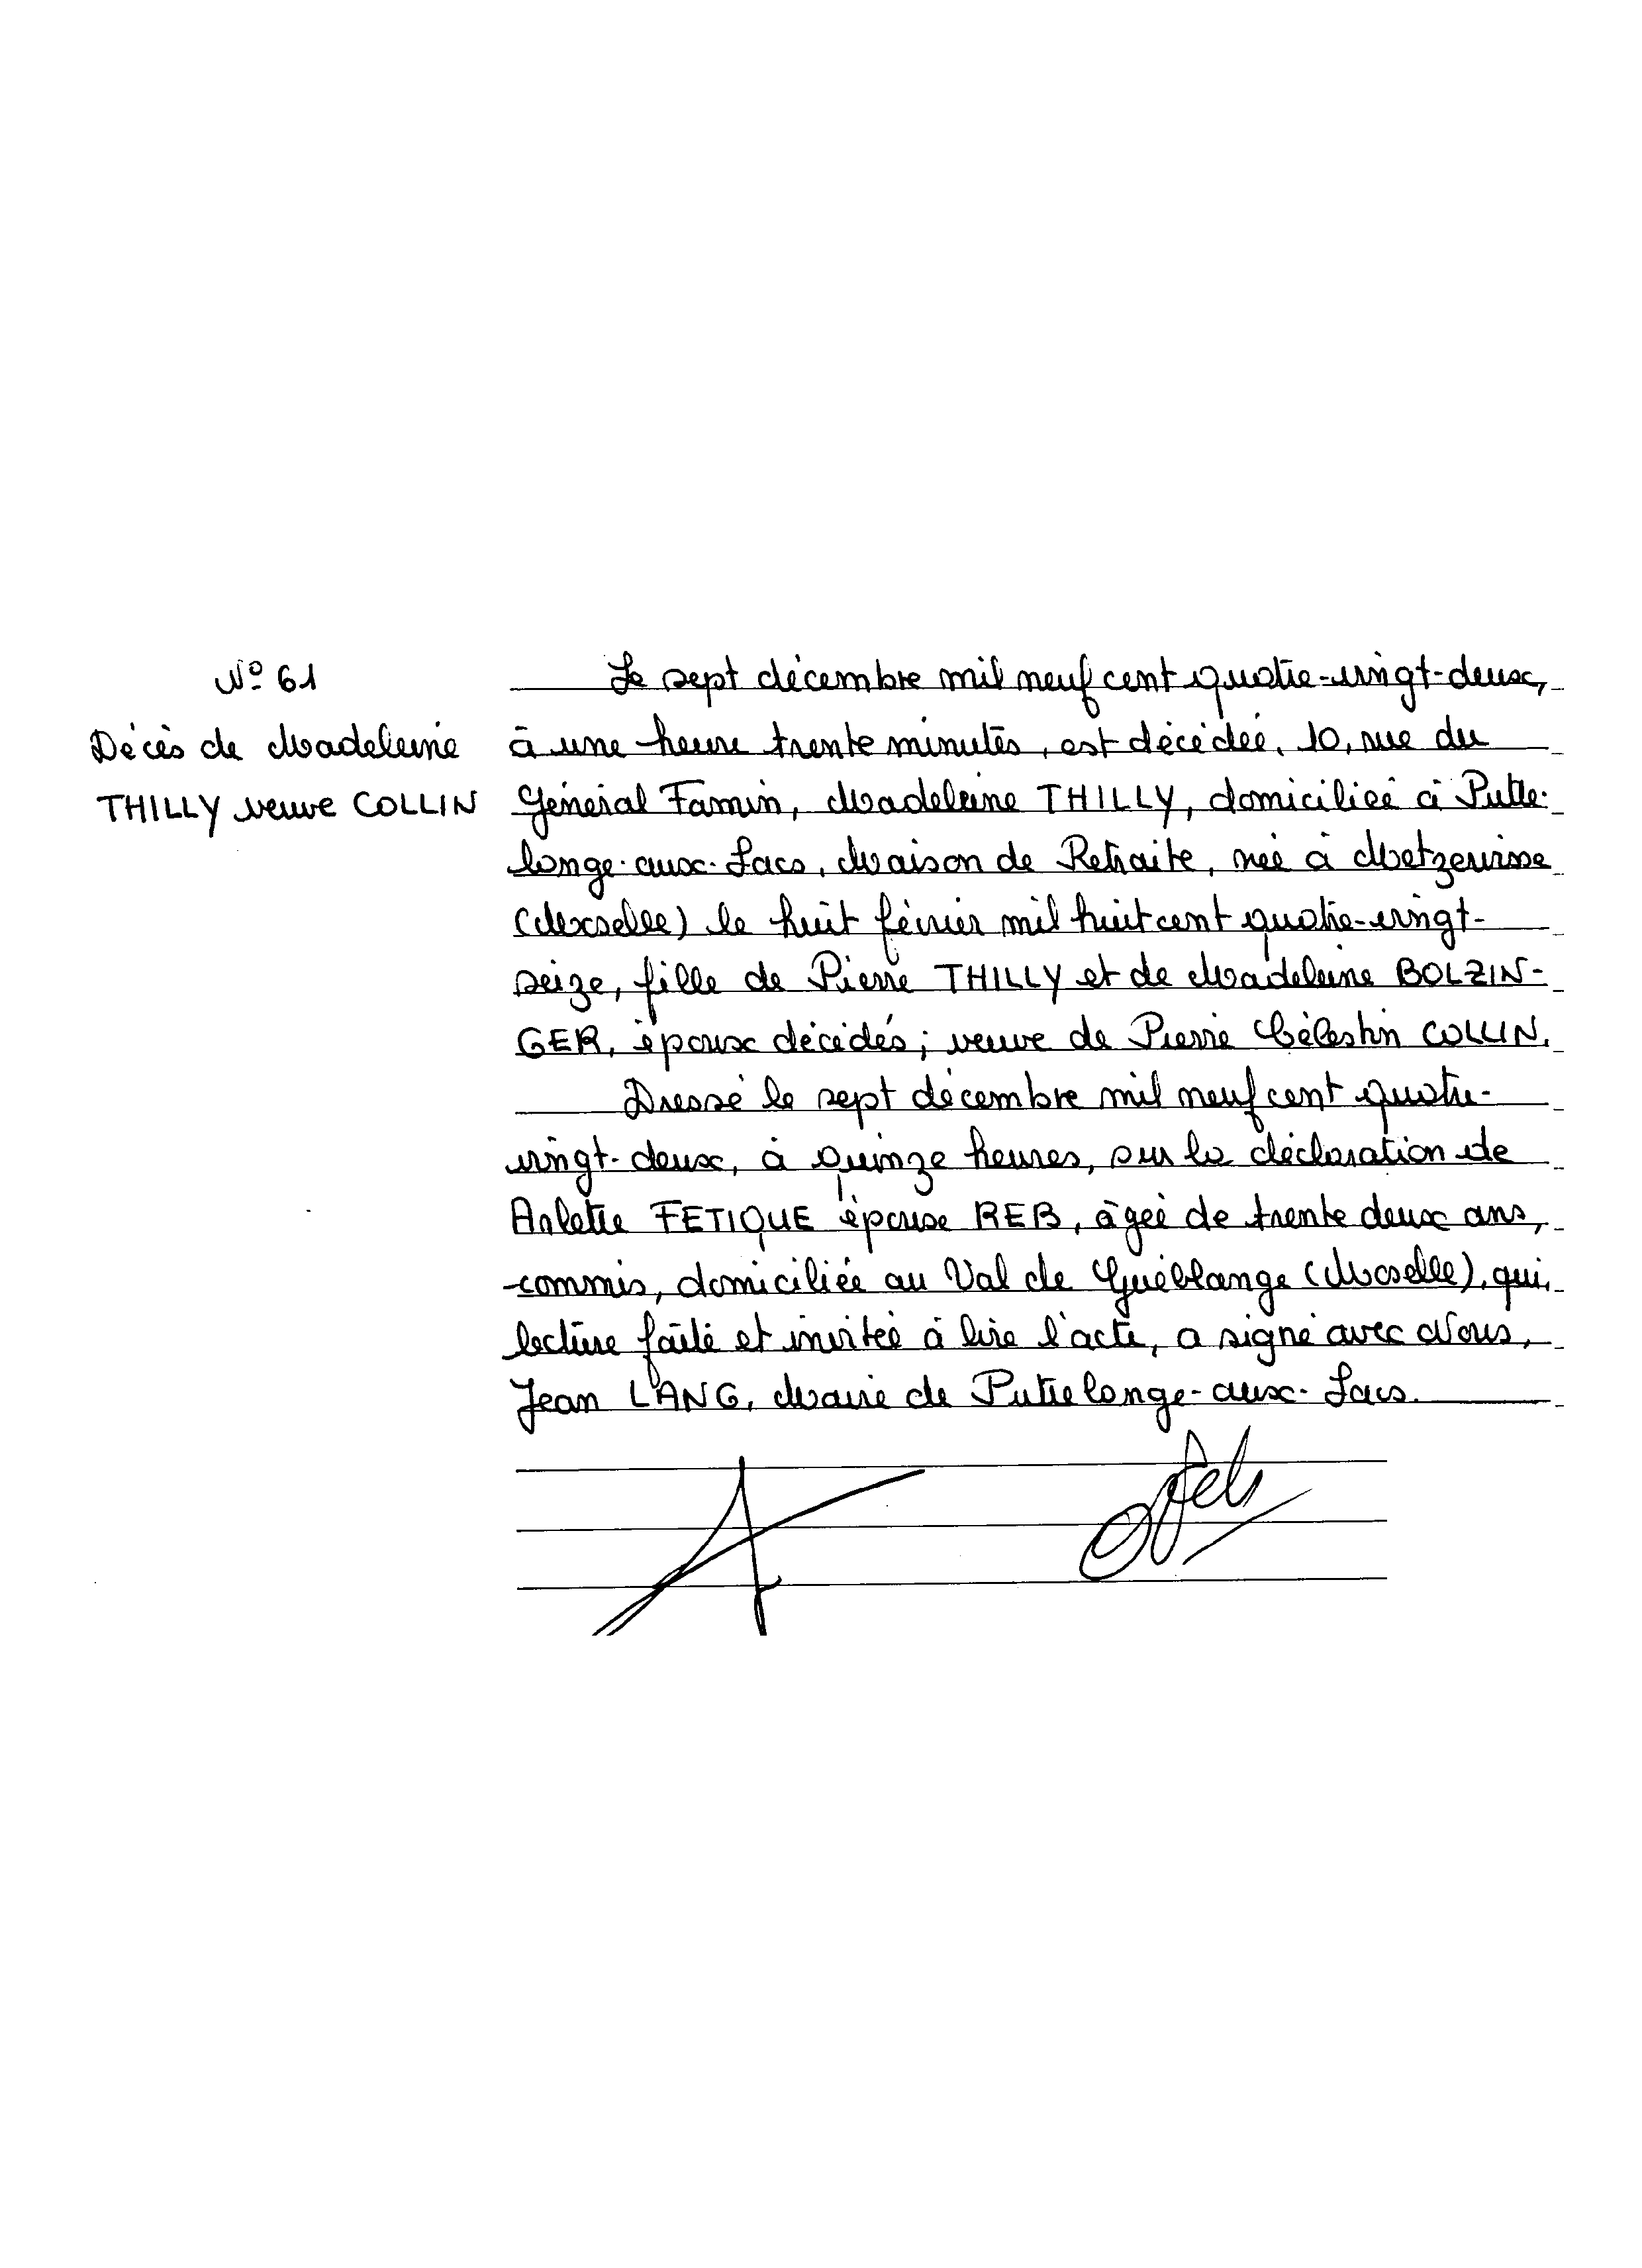 Nº 61
Décès de Madeleine
THILLY veuve COLLIN
Le sept décembre mil neuf cent quatre-vingt-deux,
à une heure trente minutes, est décédée, 10, rue du
Général Famin, Madeleine THILLY, domiciliée à Putte-
lange-aux-Lacs, Maison de Retraite, née à Metzervisse
(Moselle) le huit février mil huit cent quatre-vingt-
seize, fille de Pierre THILLY et de Madeleine BOLZIN-
GER, époux décédés; veuve de Pierre Célestin COLLIN.
Dressé le sept décembre mil neuf cent quatre-
vingt-deux, à quinze heures, sur la déclaration de
Arlette FETIQUE épouse REB, âgée de trente deux ans,
commis, domiciliée au Val de Guéblange (Moselle), qui,
lecture faite et invitée à lire l'acte, a signé avec Nous,
Jean LANG, Maire de Puttelange-aux-Lacs.